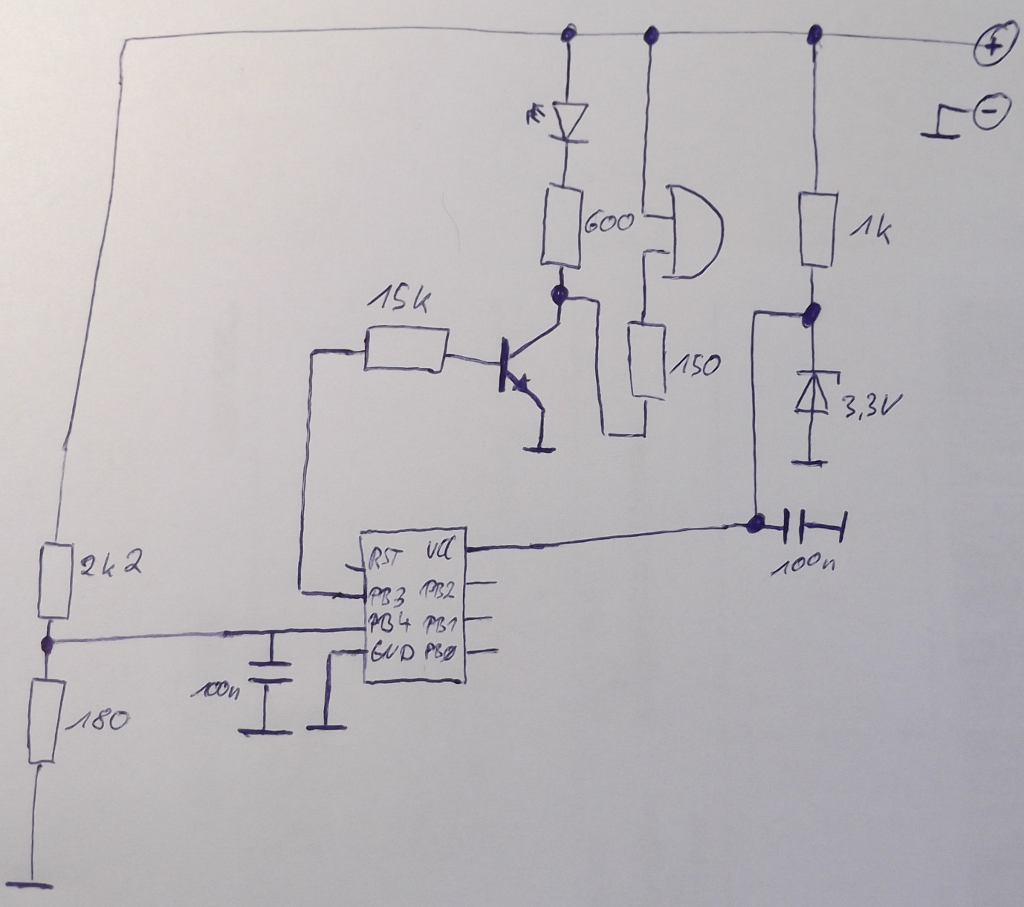 +
-
600
1k
15k
150
3,3V
2k2
RST VCC
PB3 PB2
PB4 PB1
GND PB0
100n
100n
180